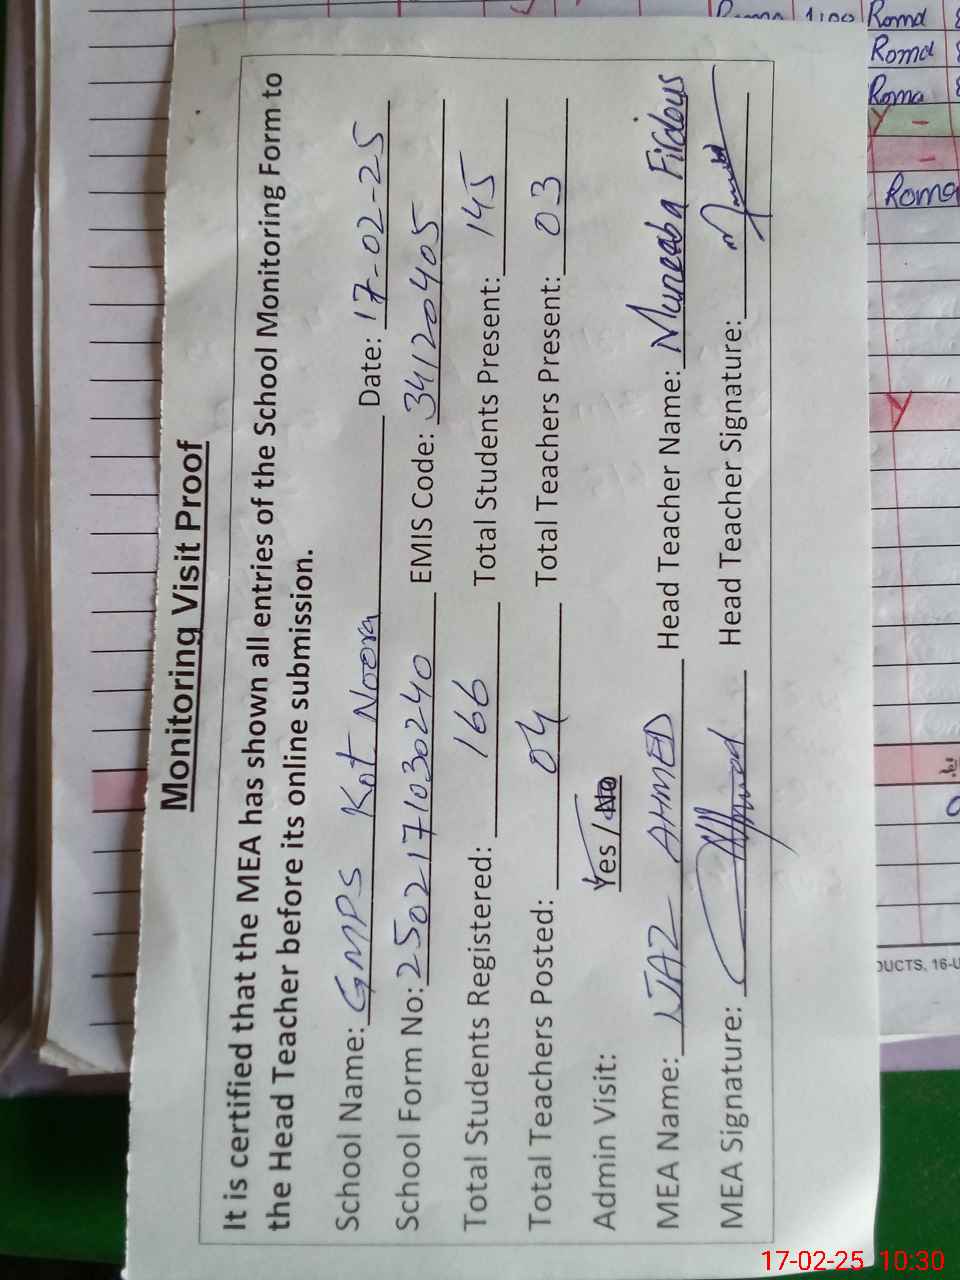 Monitoring Visit Proof
It is certified that the MEA has shown all entries of the School Monitoring Form to
the Head Teacher before its online submission.
School Name: GMPS Kot Noora Date: 17-02-25
School Form No: 2502171030240 EMIS Code: 34120405
Total Students Registered: 166 Total Students Present: 145
Total Teachers Posted: 04 Total Teachers Present: 03
Admin Visit: Yes / No
MEA Name: IJAZ AHMED Head Teacher Name: Muneeba Firdous
MEA Signature: Head Teacher Signature:
Roma
Romd
Romd
Roma
Roma
DUCTS, 16-U
17-02-25 10:30